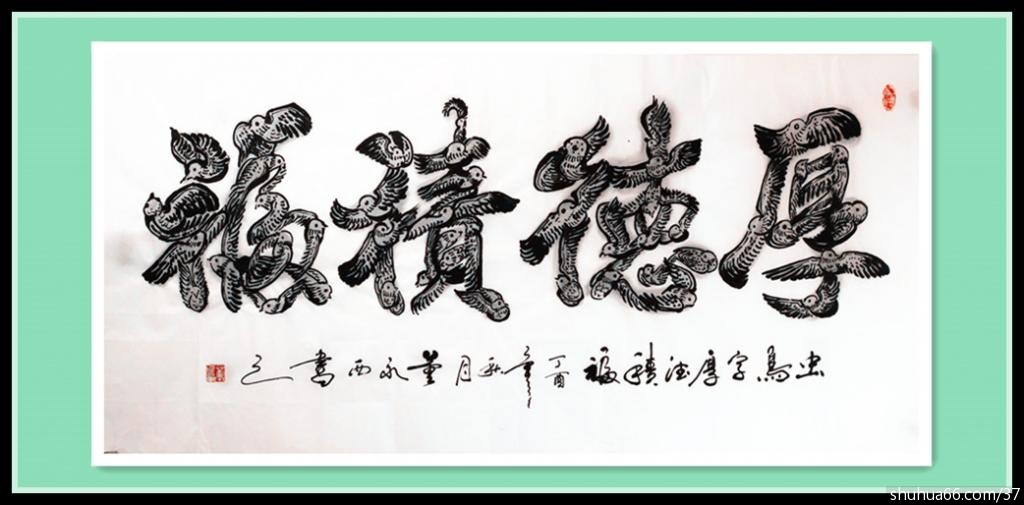 厚德積福
虫鳥字厚德積福丁酉年秋月董永西書之
shuhua66.com/37